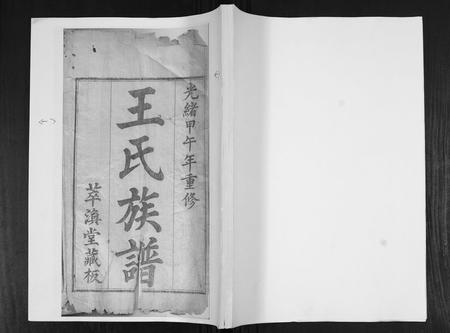 光緒甲午年重修
王氏族譜
萃渙堂藏板